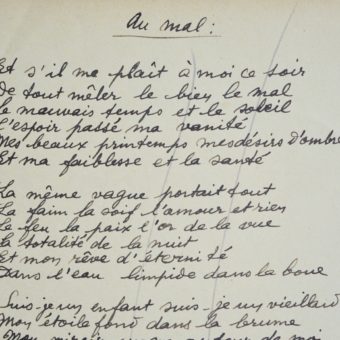 Au mal :
Et s'il me plaît à moi ce soir
De tout mêler le bien le mal
Le mauvais temps et le soleil
L'espoir passé ma vanité
Mes beaux printemps mes désirs d'ombre
Et ma faiblesse et la santé
La même vague portait tout
La faim la soif l'amour et rien
Le feu la paix l'or de la vue
La totalité de la nuit
Et mon rêve d'éternité
Dans l'eau limpide dans la boue
Suis-je un enfant suis-je un vieillard
Mon étoile fond dans la brume
Mon miroir de moi